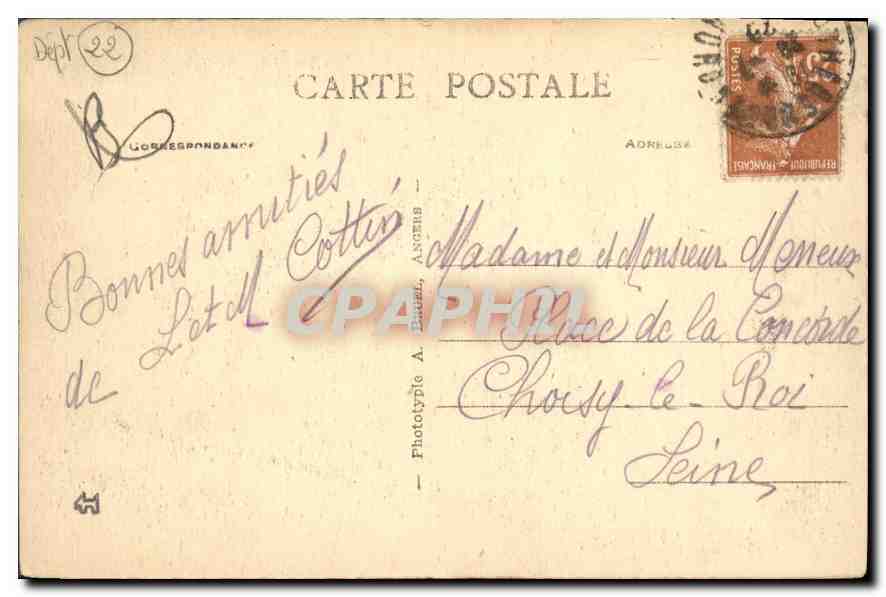 Dépt 22
CARTE POSTALE
CORRESPONDANCE
ADRESSE
POSTES
REPUBLIQUE FRANÇAISE
Bonnes amitiés
de L et M Cottin
— Phototypie A. BRUEL, ANGERS —
Madame et Monsieur Meneux
Place de la Concorde
Choisy-le-Roi
Seine
CPAPHIL